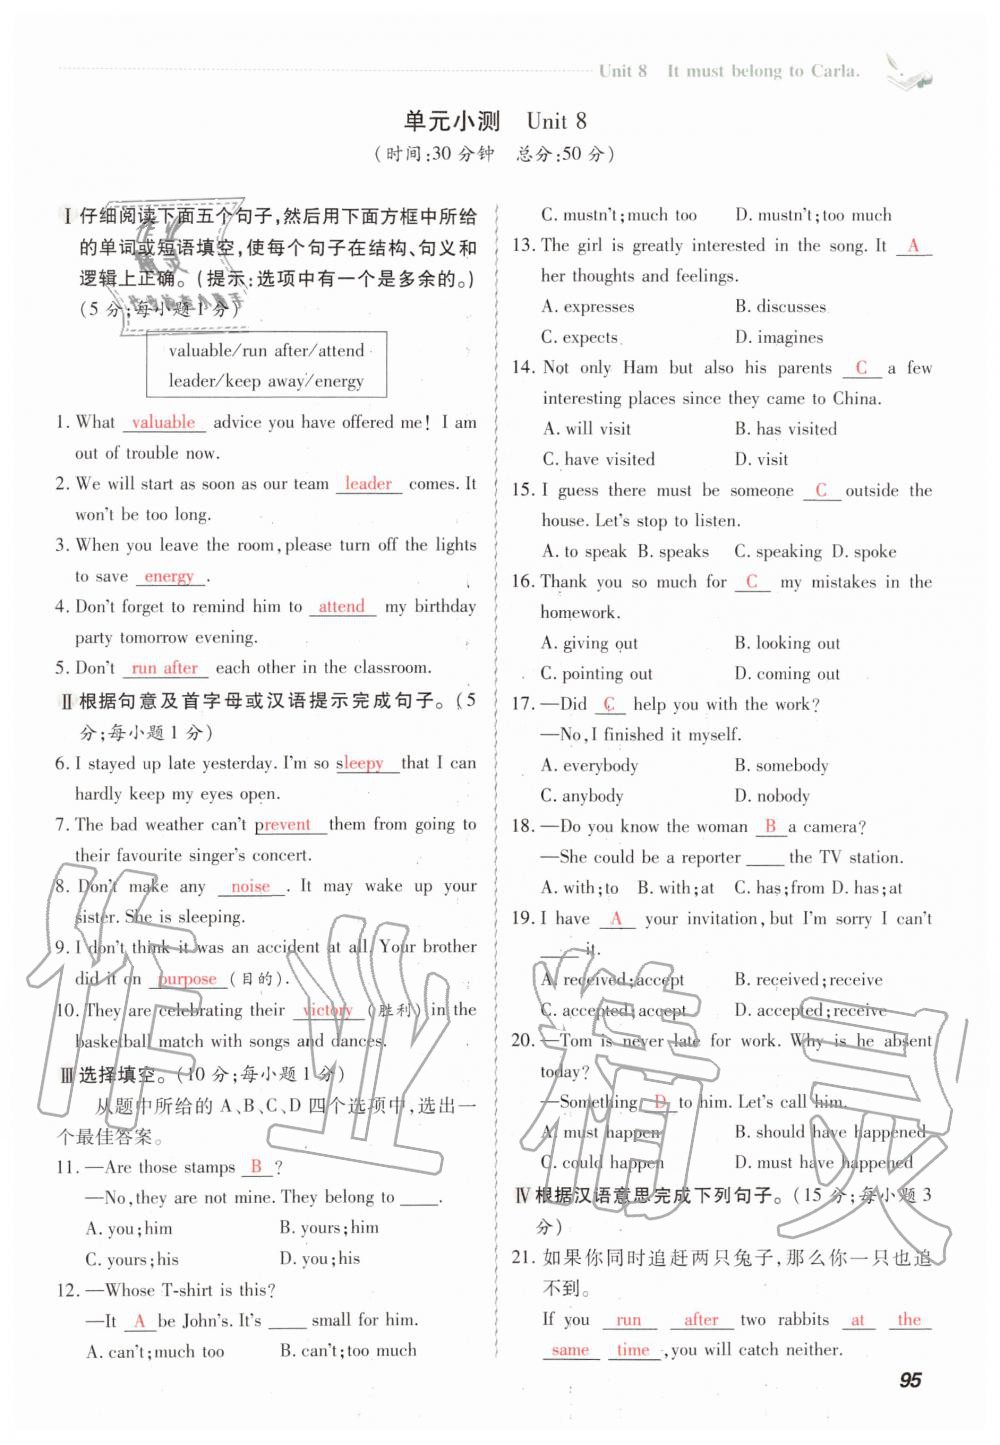 Unit 8 It must belong to Carla.
单元小测 Unit 8
(时间:30分钟 总分:50分)
Ⅰ 仔细阅读下面五个句子,然后用下面方框中所给
的单词或短语填空,使每个句子在结构、句义和
逻辑上正确。(提示:选项中有一个是多余的。)
(5分;每小题1分)
valuable/run after/attend
leader/keep away/energy
1. What valuable advice you have offered me! I am
out of trouble now.
2. We will start as soon as our team leader comes. It
won't be too long.
3. When you leave the room,please turn off the lights
to save energy .
4. Don't forget to remind him to attend my birthday
party tomorrow evening.
5. Don't run after each other in the classroom.
Ⅱ 根据句意及首字母或汉语提示完成句子。(5
分;每小题1分)
6. I stayed up late yesterday. I'm so sleepy that I can
hardly keep my eyes open.
7. The bad weather can't prevent them from going to
their favourite singer's concert.
8. Don't make any noise . It may wake up your
sister. She is sleeping.
9. I don't think it was an accident at all. Your brother
did it on purpose (目的).
10. They are celebrating their victory (胜利) in the
basketball match with songs and dances.
Ⅲ 选择填空。(10分;每小题1分)
从题中所给的A、B、C、D四个选项中,选出一
个最佳答案。
11. —Are those stamps B ?
—No,they are not mine. They belong to ____.
A. you;him B. yours;him
C. yours;his D. you;his
12. —Whose T-shirt is this?
—It A be John's. It's ____ small for him.
A. can't;much too B. can't;too much
C. mustn't;much too D. mustn't;too much
13. The girl is greatly interested in the song. It A
her thoughts and feelings.
A. expresses B. discusses
C. expects D. imagines
14. Not only Ham but also his parents C a few
interesting places since they came to China.
A. will visit B. has visited
C. have visited D. visit
15. I guess there must be someone C outside the
house. Let's stop to listen.
A. to speak B. speaks C. speaking D. spoke
16. Thank you so much for C my mistakes in the
homework.
A. giving out B. looking out
C. pointing out D. coming out
17. —Did C help you with the work?
—No,I finished it myself.
A. everybody B. somebody
C. anybody D. nobody
18. —Do you know the woman B a camera?
—She could be a reporter ____ the TV station.
A. with;to B. with;at C. has;from D. has;at
19. I have A your invitation,but I'm sorry I can't
____ it.
A. received;accept B. received;receive
C. accepted;accept D. accepted;receive
20. —Tom is never late for work. Why is he absent
today?
—Something D to him. Let's call him.
A. must happen B. should have happened
C. could happen D. must have happened
Ⅳ 根据汉语意思完成下列句子。(15分;每小题3
分)
21. 如果你同时追赶两只兔子,那么你一只也追
不到。
If you run after two rabbits at the
same time ,you will catch neither.
95
作业精灵